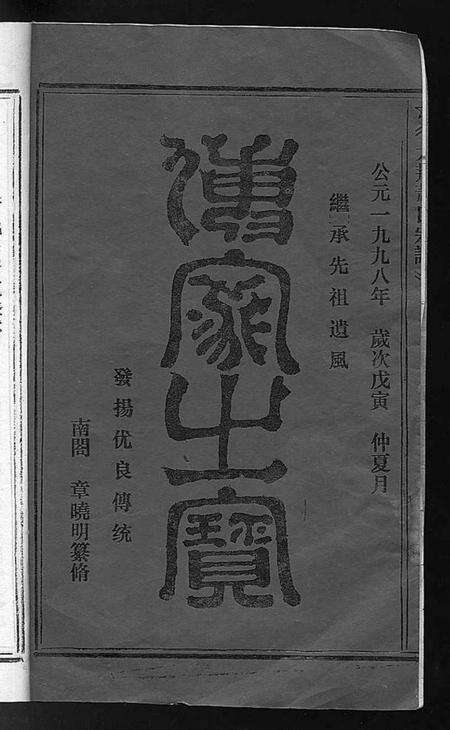 公元一九九八年 歲次戊寅 仲夏月
繼承先祖遺風
傳家之寶
發揚优良傳统
南閤 章曉明纂脩